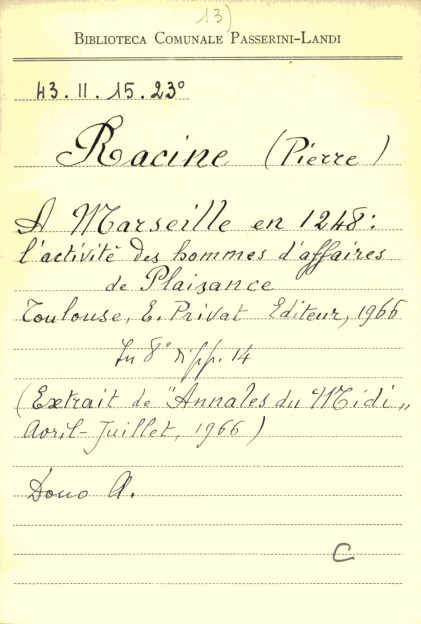 13)
BIBLIOTECA COMUNALE PASSERINI-LANDI
43.II.15.23°
Racine (Pierre)
A Marseille en 1248:
l'activité des hommes d'affaires
de Plaisance
Toulouse, E. Privat Editeur, 1966
In 8° di pp. 14
(Extrait de "Annales du Midi„
Avril-Juillet, 1966)
Dono A.
C